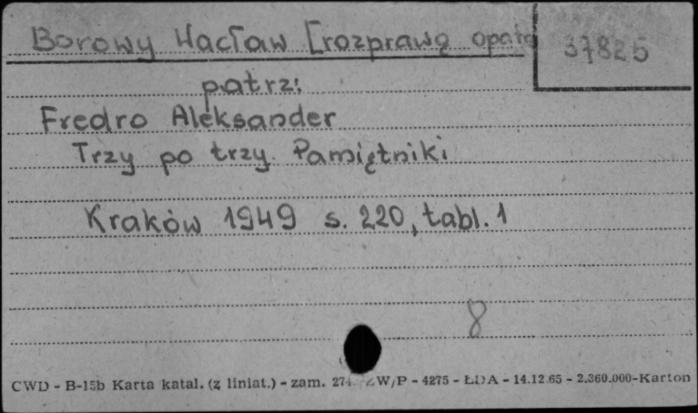 Borowy Wacław [rozprawą opatrz
37825
patrz:
Fredro Aleksander
Trzy po trzy. Pamiętniki
Kraków 1949 s. 220, tabl. 1
8
CWD - B-15b Karta katal. (z liniat.) - zam. ZW/P - 4275 - ŁDA - 14.12.65 - 2.360.000-Karton